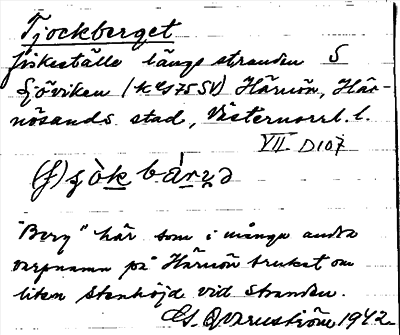 Tjockberget
fiskeställe längs stranden S
Sjöviken (kes75 SV) Härnön, Här-
nösands stad, Västernorrl. l.
VII D107
"Berg" här som i många andra
varpnamn på Härnön brukat om
liten stenhöjd vid stranden.
1942